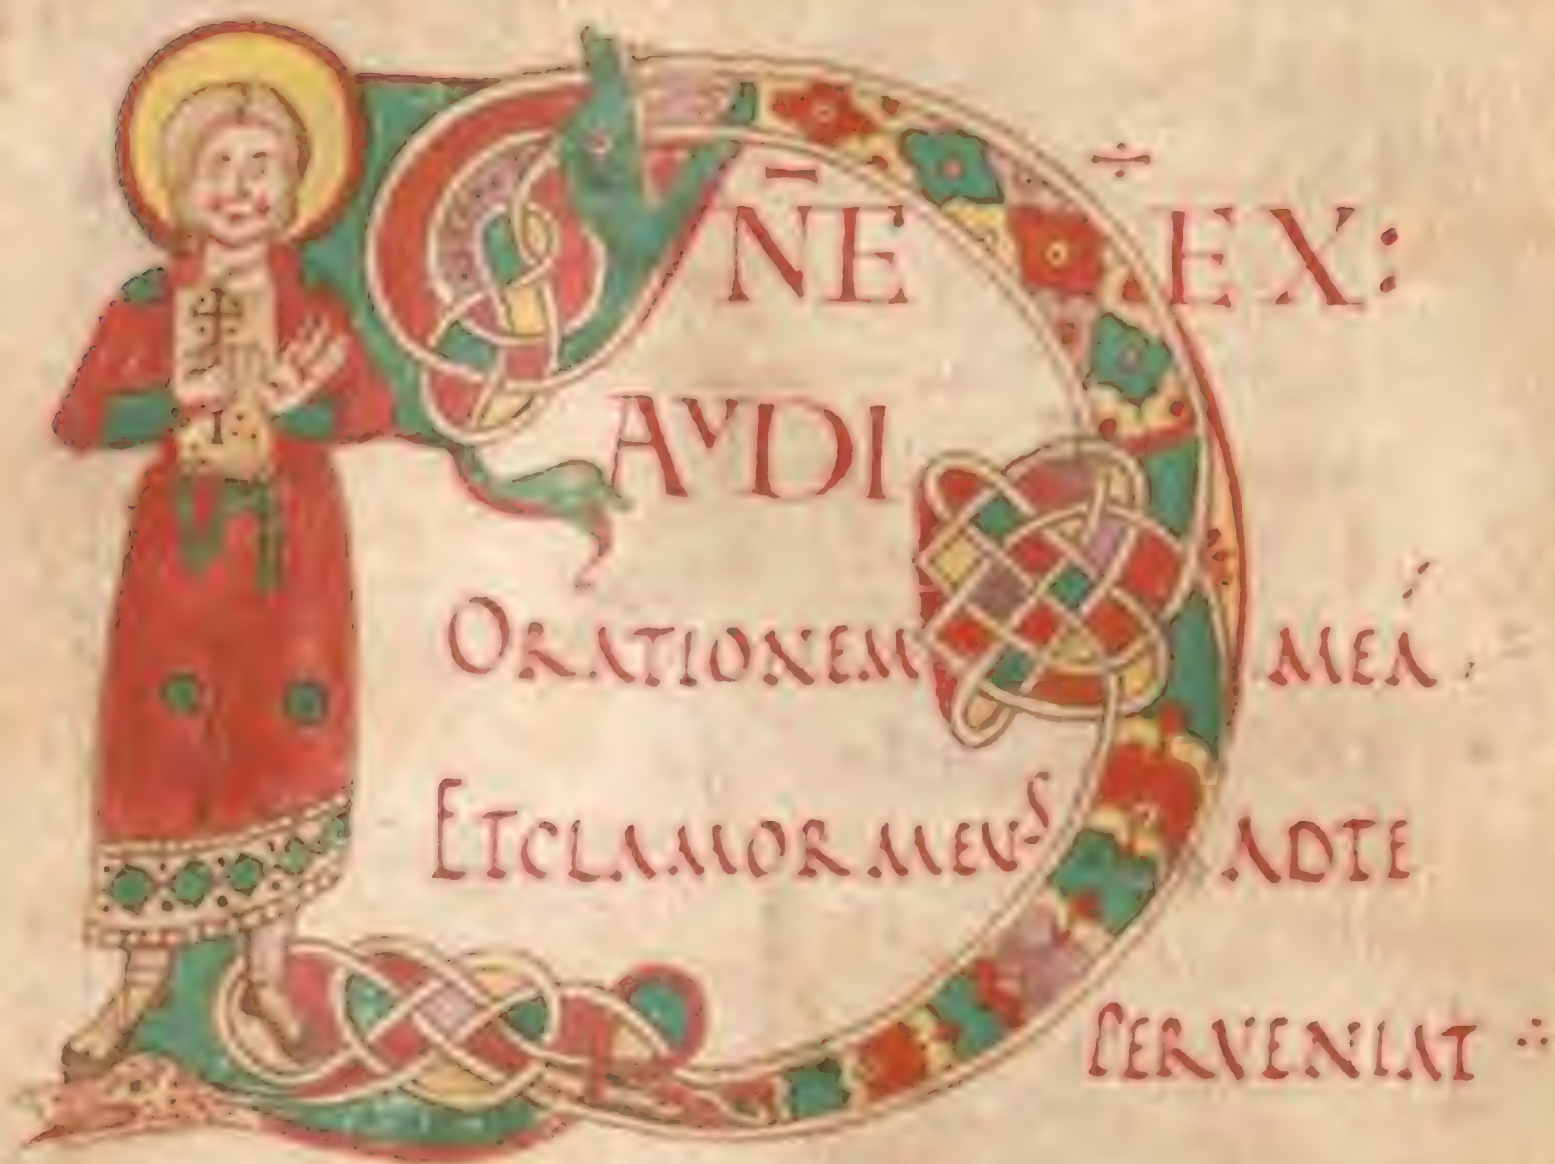 D̄NE EX:
AVDI
ORATIONEM MEÁ
ETCLAMOR MEVS ADTE
PERVENIAT